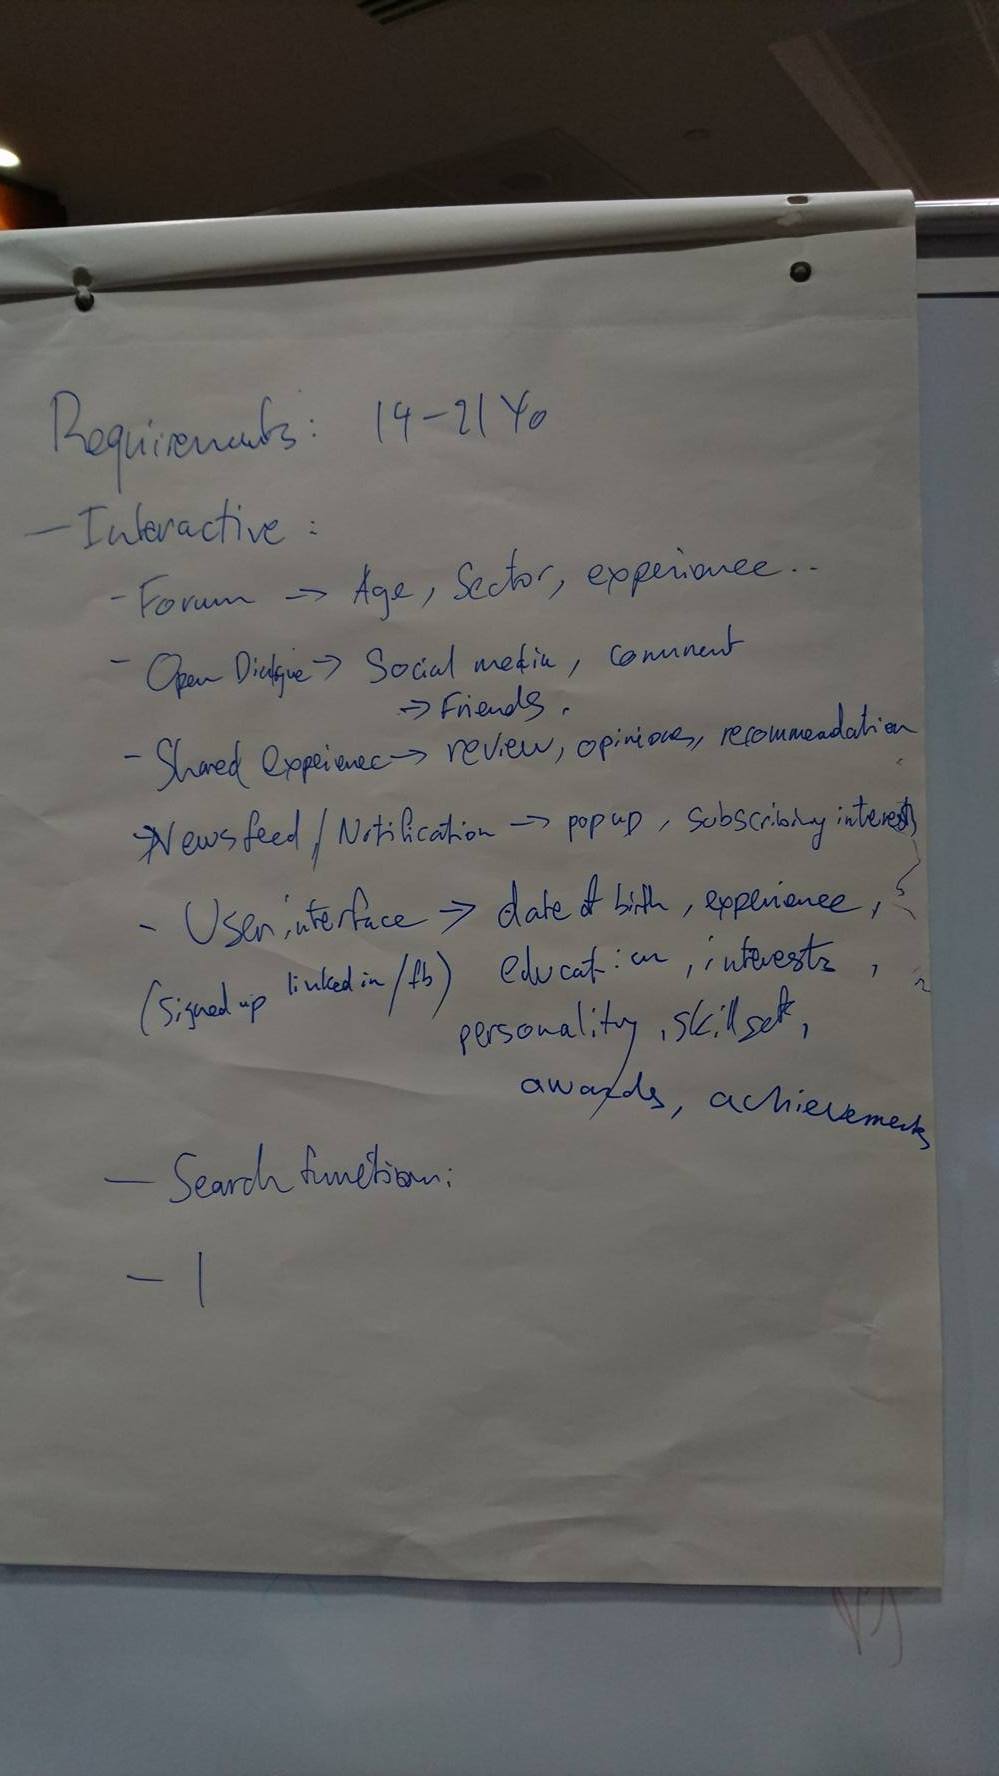 Requirements: 14-21 Yo
- Interactive:
- Forum -> Age, Sector, experience..
- Open Dialogue -> Social media, comment
-> Friends.
- Shared experience -> review, opinions, recommendation
-> Newsfeed / Notification -> pop up, subscribing interests
- User interface -> date of birth, experience,
(signed up linked in / fb) education, interests,
personality, skillset,
awards, achievements
- Search function:
- |